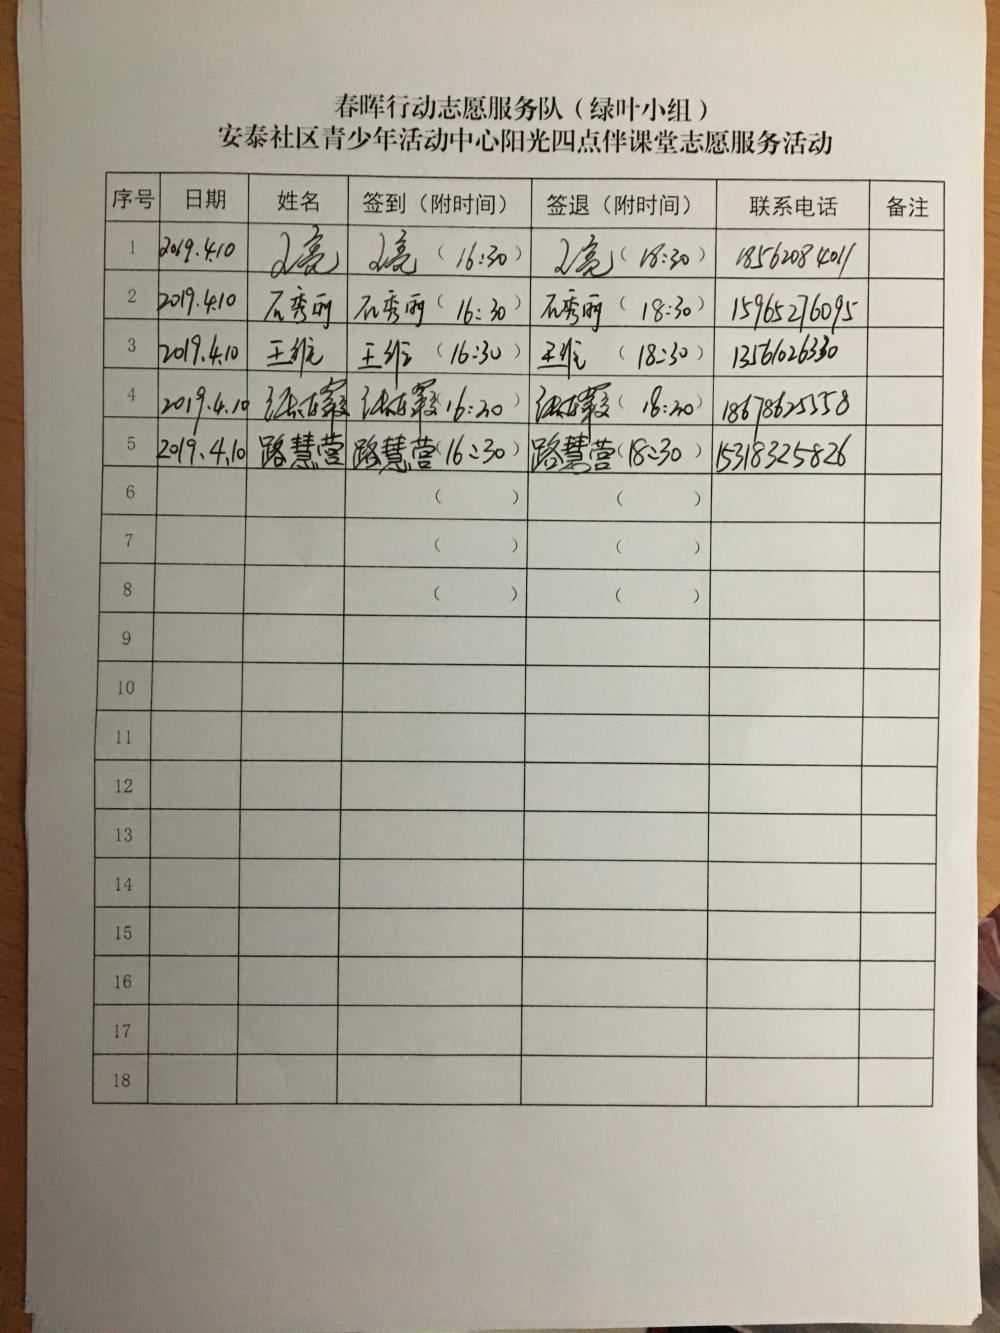 春晖行动志愿服务队（绿叶小组）
安泰社区青少年活动中心阳光四点伴课堂志愿服务活动
序号 日期 姓名 签到（附时间） 签退（附时间） 联系电话 备注
1 2019.4.10 （16:30） （18:30） 18562084011
2 2019.4.10 石秀丽 石秀丽（16:30） 石秀丽（18:30） 15965276095
3 2019.4.10 王维 王维（16:30） 王维（18:30） 13561026330
4 2019.4.10 （16:30） （18:30） 18678625558
5 2019.4.10 路慧营 路慧营（16:30） 路慧营（18:30） 15318325826
6 （ ） （ ）
7 （ ） （ ）
8 （ ） （ ）
9
10
11
12
13
14
15
16
17
18